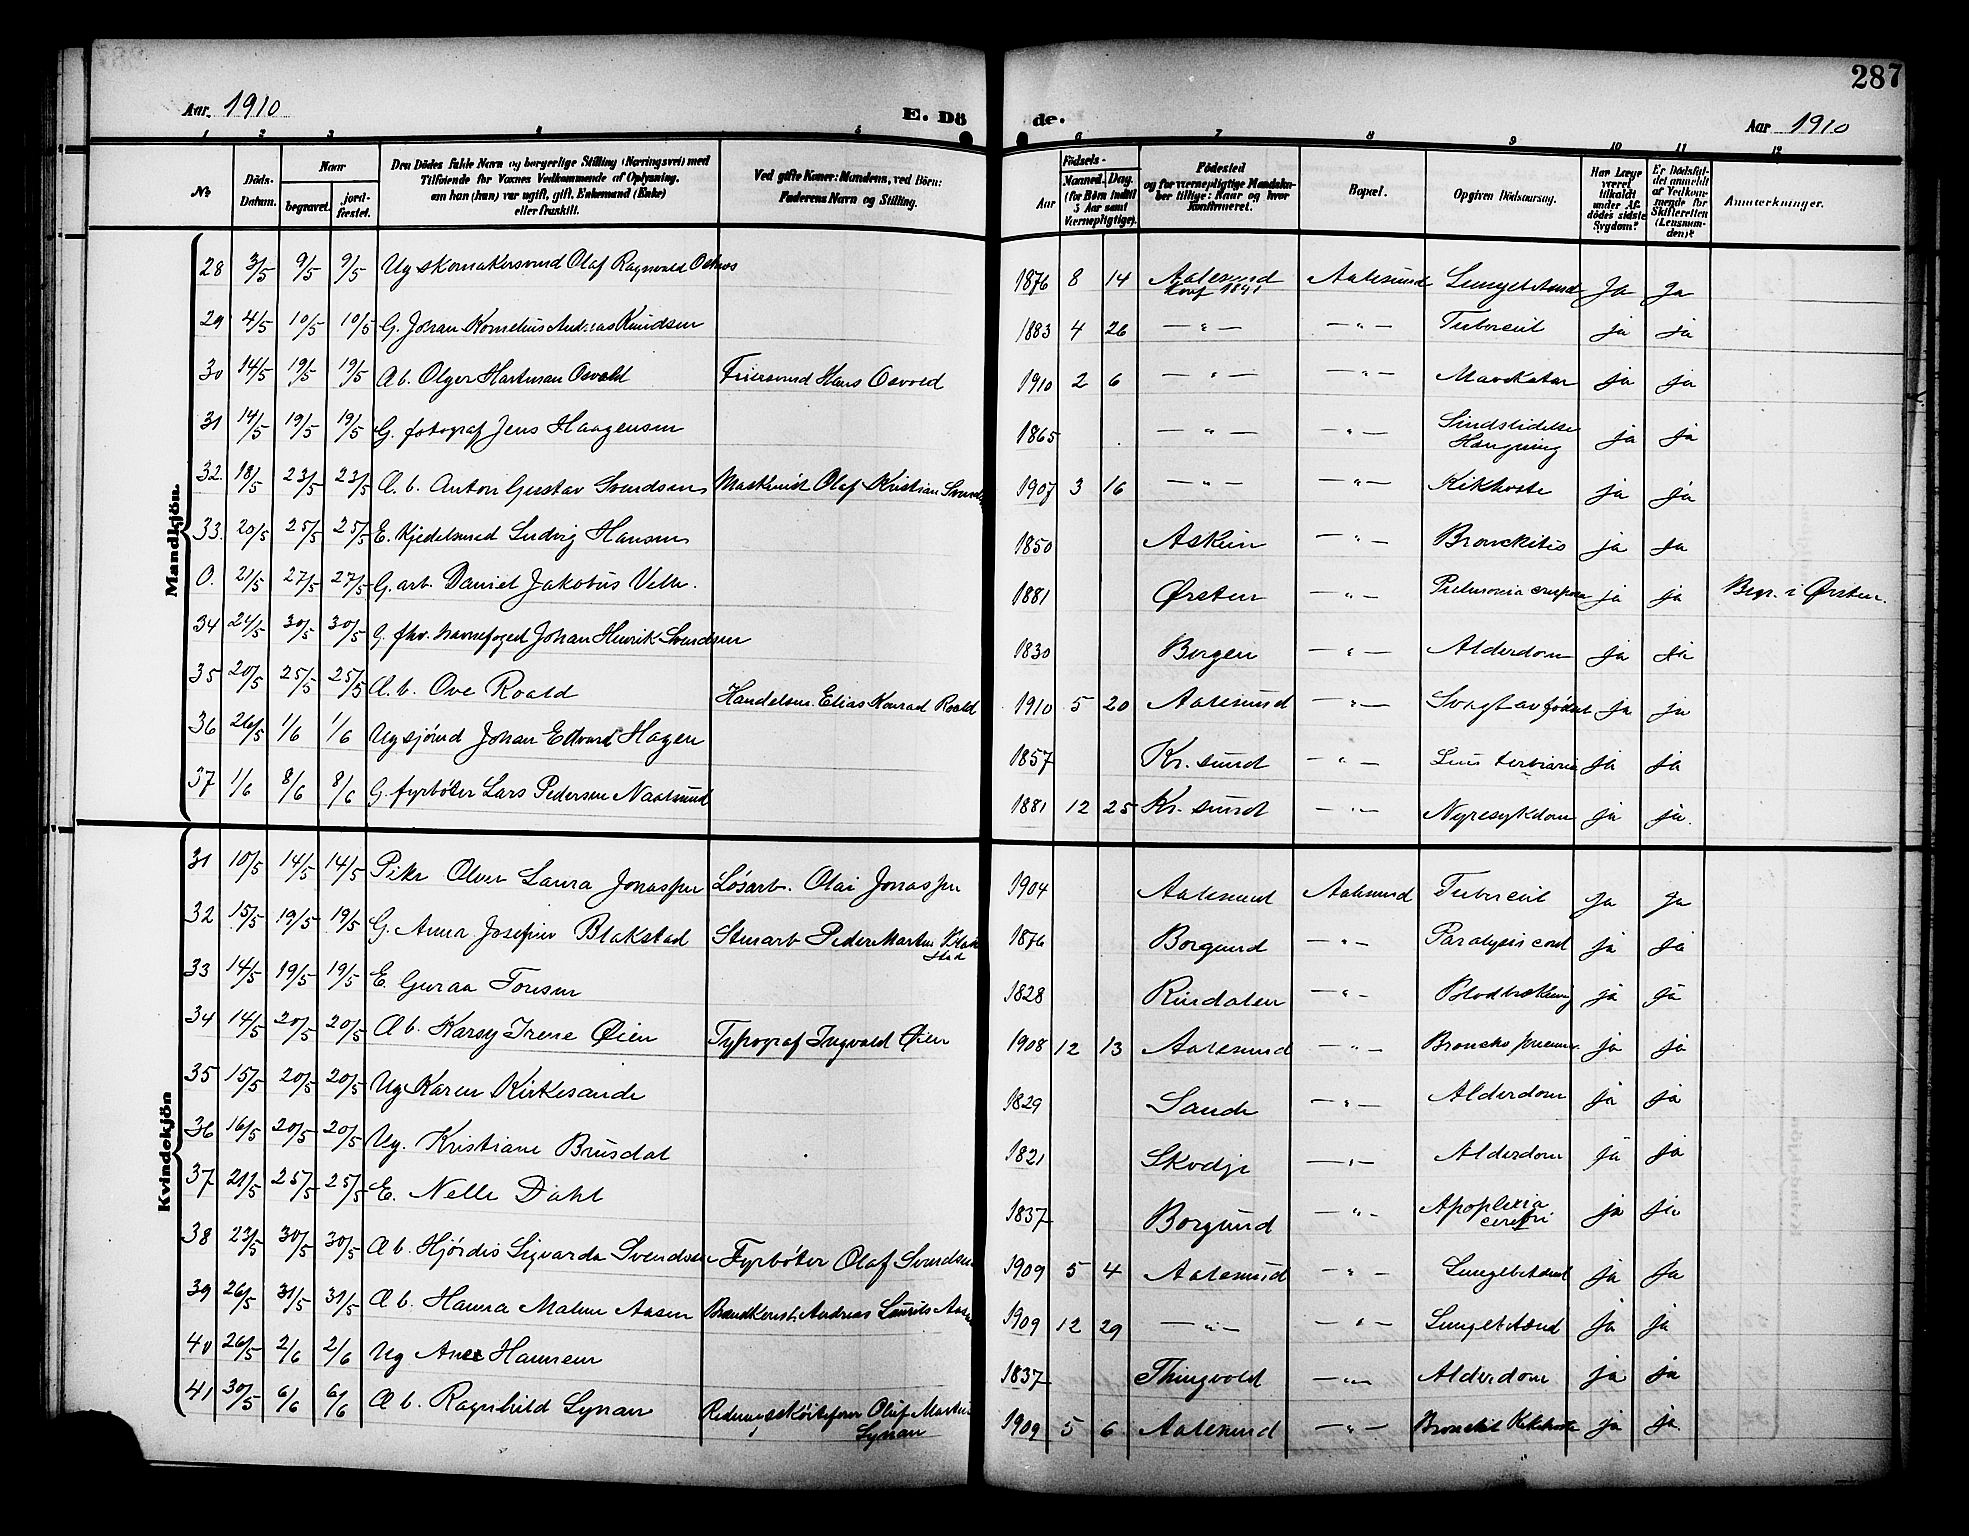 287
Aar 1910
E. Dö
de.
Aar 1910
1 2 3 4 5
6 7 8 9 10 11 12
No
Döds-
Datum.
Naar
begravet.
jord-
fæstet.
Den Dödes fulde Navn og borgerlige Stilling (Næringsvei) med
Tilföiende for Voxnes Vedkommende af Oplysning,
om han (hun) var ugift, gift, Enkemand (Enke)
eller fraskilt.
Ved gifte Koner: Mandens, ved Börn:
Faderens Navn og Stilling.
Födsels-
Aar
Maaned. Dag.
(for Börn indtil
5 Aar samt
Værnepligtige).
Födested
og for værnepligtige Mandskа-
ber tillige: Naar og hvor
konfirmeret.
Bopæl.
Opgiven Dödsaarsag.
Har Læge
været
tilkaldt
under Af-
dödes sidste
Sygdom?
Er Dödsfal-
det anmeldt
af Vedkom-
mende for
Skifteretten
(Lensman-
den)?
Anmærkninger.
Mandkjön.
28 3/5 9/5 9/5 Ug skomakersvend Olaf Ragnvald 1876 8 14 Aalesund Aalesund Lungebetænd Ja Ja
29 4/5 10/5 10/5 G. Johan Kornelius Andreas Knudsen 1883 4 26 — " — — " — Tuberciul ja ja
30 14/5 19/5 19/5 Æ b. Olger Hartman Osvold Feiersvend Hans Osvold 1910 2 6 — " — — " — Mavekatar ja ja
31 14/5 19/5 19/5 G. fotograf Jens Haagensen 1865 — " — — " — Sindslidelse
Hængning ja ja
32. 18/5 23/5 23/5 Æ. b. Anton Gustav Svendsen Maskinist Olaf Kristian 1907 3 16 — " — — " — Kikhoste ja ja
33. 20/5 25/5 25/5 E. Kjedelsmed Ludvig Hansen 1850 Askim — " — Bronchitis ja ja
0. 21/5 27/5 27/5 G. arb. Daniel Jakobus 1881 Ørsten — " — ja ja Begr. i Ørsten.
34 24/5 30/5 30/5 G. fhv. havnefoged Johan Henrik Svendsen 1830 Bergen — " — Alderdom ja ja
35 20/5 25/5 25/5 Æ. b. Ove Roald Handelsm. Elias Konrad Roald 1910 5 20 Aalesund — " — Svagt av fødsel ja ja
36 26/5 1/6 1/6 Ug sjømd Johan Edvard Hagen 1857 Kr. sund — " — ja ja
37 1/6 8/6 8/6 G. fyrbøter Lars Pedersen 1881 12 25 Kr. sund — " — Nyresykdom ja ja.
Kvindekjön
31 10/5 14/5 14/5 Pike Laura Jonassen Løsarb. Olai Jonassen 1904 Aalesund Aalesund Tuberciul Ja Ja
32 15/5 19/5 19/5 G. Anna Josefine Blakstad Stuarb Peder Martin Blak
stad 1876 Borgund — " — Paralysis cord ja ja
33 14/5 19/5 19/5 E. Guraa Toresen 1828 Rindalen — " — ja ja
34 14/5 20/5 20/5 Æ b. Karsy Irene Øien Typograf Ingvald Øien 1908 12 13 Aalesund — " — ja ja
35 15/5 20/5 20/5 Ug Karen Kirkesande 1829 Sande — " — Alderdom ja ja
36 16/5 20/5 20/5 Ug. Kristiane Brusdal 1821 Skodje — " — Alderdom ja ja
37 21/5 25/5 25/5 E. Nelle Dahl 1837 Borgund — " — Apoplexia
cerebri ja ja
38 23/5 30/5 30/5 Æ b. Hjørdis Sigvarda Svendsen Fyrbøter Olaf Svendsen 1909 5 4 Aalesund — " — Lungebetænd ja ja
39 26/5 31/5 31/5 Æ b. Hanna Malene Aasen Brandkonst. Andreas Laurits 1909 12 29 — " — — " — Lungebetænd ja ja
40 26/5 2/6 2/6 Ug Ane Hansen 1837 Thingvold — " — Alderdom ja ja
41 30/5 6/6 6/6 Æ b. Ragnhild Synan Oluf Martin
Synan 1909 5 6 Aalesund — " — Bronchit Kikhoste ja ja.